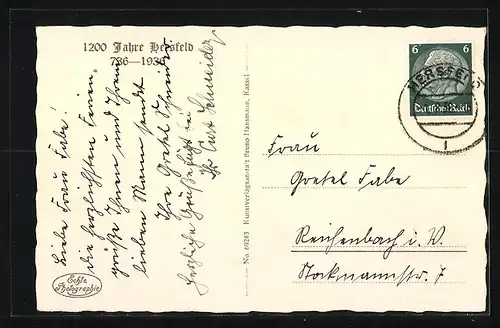 1200 Jahre Hersfeld
736—1936
Liebe Frau Fabe!
die herzlichsten Ferien-
grüße Ihnen und Ihrem
lieben Mann sendet
Ihre Gretel Schneider
herzliche Grüße fügt bei
Ihr Curt Schneider
Echte
Photographie
No. 69243 Kunstverlagsanstalt Bruno Hansmann, Kassel
6 6
Deutsches Reich
HERSFELD
Frau
Gretel Fabe
Reichenbach i. V.
Stockmannstr. 7